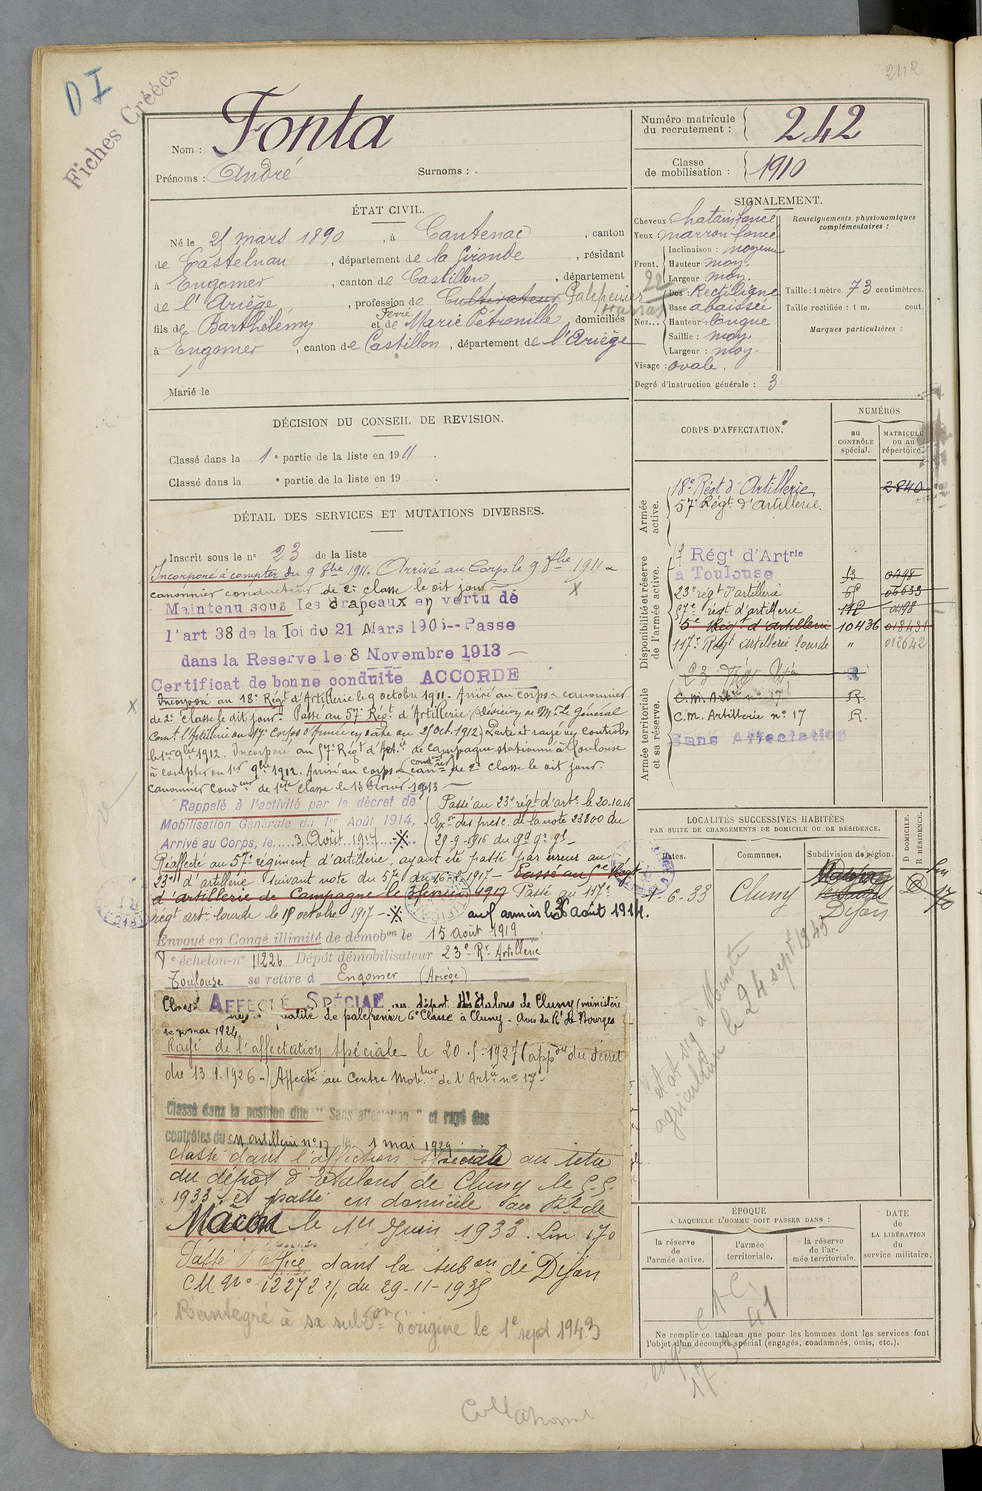 242
D I
Fiches Créées
Nom : Fonta
Prénoms : André Surnoms :
Numéro matricule du recrutement : 242
Classe de mobilisation : 1910
ÉTAT CIVIL.
Né le 25 mars 1890, à Cantenac, canton
de Castelnau, département de la Gironde, résidant
à Engomer, canton de Castillon, département
de l'Ariège, profession de Cultivateur Palefrenier
Haras 22
fils de Barthélémy et de Ferré Marie Pétronille, domiciliés
à Engomer, canton de Castillon, département de l'Ariège
Marié le
SIGNALEMENT.
Cheveux chatain foncé
Yeux marron foncé
Front. Inclinaison : moyenne
Hauteur moy.
Largeur moy.
Nez... Dos : Rectiligne
Base abaissée
Hauteur longue
Saillie : moy.
Largeur : moy.
Visage : ovale.
Degré d'instruction générale : 3
Renseignements physionomiques complémentaires :
Taille : 1 mètre 73 centimètres.
Taille rectifiée : 1 m. cent.
Marques particulières :
DÉCISION DU CONSEIL DE REVISION.
Classé dans la 1e partie de la liste en 1911.
Classé dans la e partie de la liste en 19 .
DÉTAIL DES SERVICES ET MUTATIONS DIVERSES.
Inscrit sous le n° 23 de la liste
Incorporé à compter du 9 8bre 1911. Arrivé au Corps le 9 8bre 1911
canonnier conducteur de 2e classe le dit jour. X
Maintenu sous les drapeaux en vertu de
l'art 38 de la Loi du 21 Mars 1905 -- Passe
dans la Reserve le 8 Novembre 1913 -
Certificat de bonne conduite ACCORDE
X Incorporé au 18e Régt d'Artillerie le 9 octobre 1911. Arrivé au corps & canonnier
de 2e Classe le dit jour. Passé au 57e Régt d'Artillerie (décision de Mr Le Général
Comt l'Artillerie du 17e Corps d'Armée en date du 25 oct. 1912) Parti et rayé des controles
le 1er 9bre 1912. Incorporé au 57e Régt d'Artie de Campagne stationné à Toulouse
à compter du 1er 9bre 1912. Arrivé au corps & canier condteur de 2e Classe le dit jour.
Canonnier Condeur de 1ère Classe le 13 Février 1913 -
Rappelé à l'activité par le décret de
Mobilisation Générale du 1er Août 1914,
Arrivé au Corps, le 3 Août 1914
Passé au 23e régt d'arte le 20.10.16
Exon des presc. de la note 23800 du
29-9-1916 du Gd Qr Gl
Réaffecté au 57e régiment d'artillerie, ayant été passé par erreur au
23e d'artillerie suivant note du 57e du 16-1-1917 - Passé au 6e Régt
d'artillerie de Campagne le 3 février 1917 Passé au 117e
régt art. lourde le 18 octobre 1917 - aux armées le 26 août 1914.
Envoyé en Congé illimité de démobon le 15 Août 1919
7e échelon - n° 11226 Dépôt démobilisateur 23e Rt Artillerie
Toulouse se retire à Engomer (Ariège)
Classé AFFECTÉ SPÉCIAL au dépôt des Etalons de Cluny (ministère
en qualité de palefrenier 6e Classe à Cluny - Avis du Rt de Bourges
mai 1924
Rayé de l'affectation spéciale le 20.5.1927 (appon du décret
du 13.1.1926 -) Affecté au Centre Mobteur de l'Artie n° 17 -
Classé dans la position dite " Sans affectation " et rayé des
contrôles du CM Artillerie n° 17 le 1 mai 1929
classé dans l'affectation spéciale au titre
du dépôt d'Etalons de Cluny le
1933 et passé en domicile au Rt de
Mâcon le 1er Juin 1933. Ln 170
Passé d'office dans la subon de Dijon
CM N° 12272 2/1 du 29-11-1935
Réintégré à sa subon d'origine le 1e sept 1943
CORPS D'AFFECTATION.
NUMÉROS
au CONTRÔLE spécial.
MATRICULE ou au répertoire.
Armée active.
18e Régt d'Artillerie 2840
57e Régt d'artillerie.
Disponibilité et réserve de l'armée active.
Régt d'Artrie
à Toulouse 13
23e régt d'artillerie
57e régt d'artillerie 112
6e Régt d'artillerie 10436 018431
117e Régt artillerie lourde " 012642
Armée territoriale et sa réserve.
C.M. Artie n° 17 R.
C.M. Artillerie n° 17 R.
Sans Affectation
LOCALITÉS SUCCESSIVES HABITÉES
PAR SUITE DE CHANGEMENTS DE DOMICILE OU DE RÉSIDENCE.
Dates. Communes. Subdivision de région. D DOMICILE. R RÉSIDENCE.
1-6-33 Cluny Dijon
le 24 sept 1945
ÉPOQUE
A LAQUELLE L'HOMME DOIT PASSER DANS :
la réserve de l'armée active.
l'armée territoriale.
la réserve de l'armée territoriale.
DATE de LA LIBÉRATION du service militaire.
Ne remplir ce tableau que pour les hommes dont les services font
l'objet d'un décompte spécial (engagés, condamnés, omis, etc.).